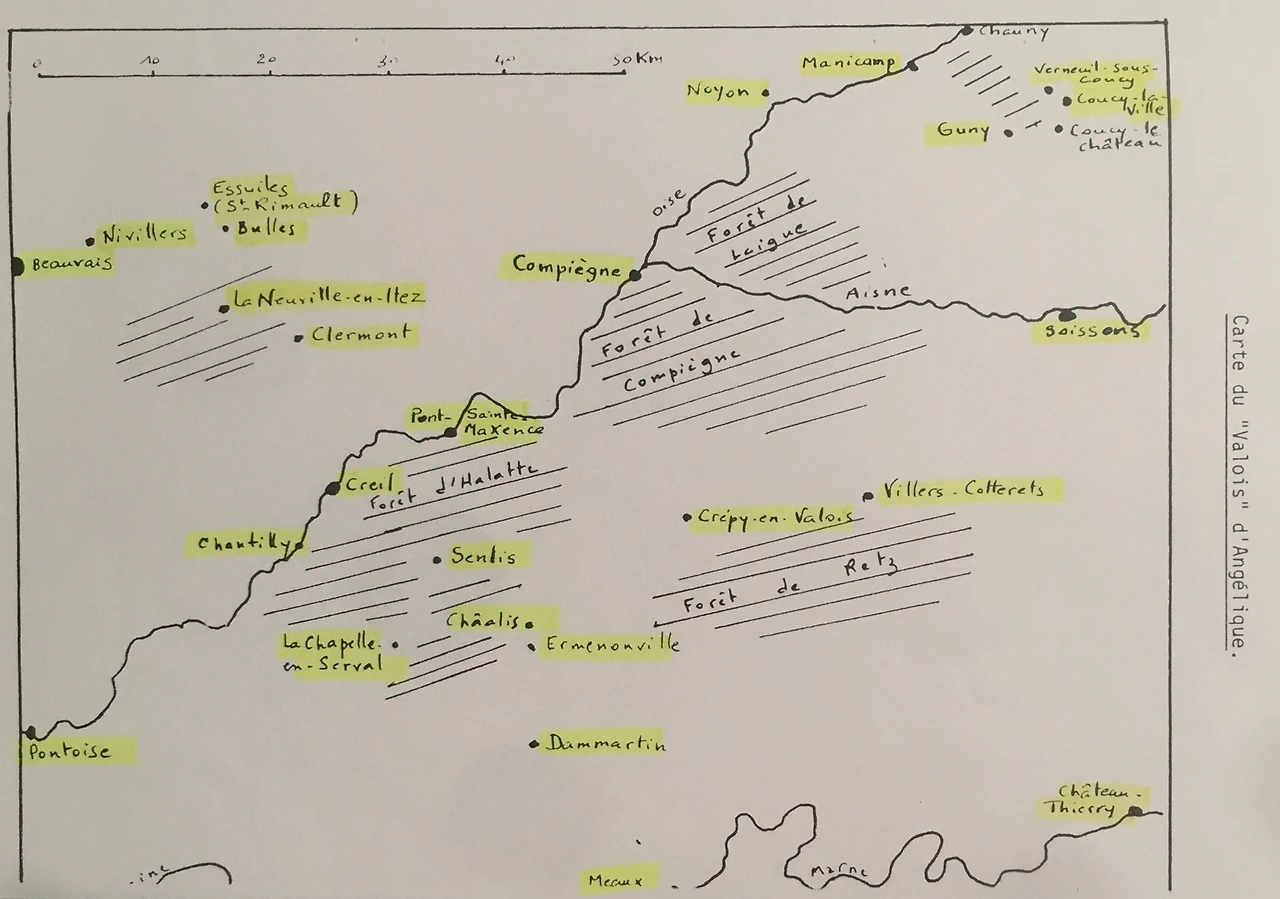 0 10 20 30 40 50 Km
Chauny
Manicamp
Verneuil-sous-
Coucy
Noyon
Coucy-la-
Ville
Guny
Coucy-le
château
Essuiles
(St-Rimault)
Oise
Forêt de
Laigue
Nivillers
Bulles
Beauvais
Compiègne
La Neuville-en-Hez
Aisne
Forêt de
Compiègne
Soissons
Clermont
Pont-Sainte
Maxence
Creil
Forêt d'Halatte
Villers-Cotterets
Crépy-en-Valois
Chantilly
Senlis
Forêt de Retz
Châalis
La Chapelle-
en-Serval
Ermenonville
Pontoise
Dammartin
Château-
Thierry
Marne
ine
Meaux
Carte du "Valois" d'Angélique.